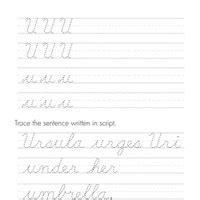 U U U
U U U
u u u
u u u
Trace the sentence written in script.
Ursula urges Uri
under her
umbrella.